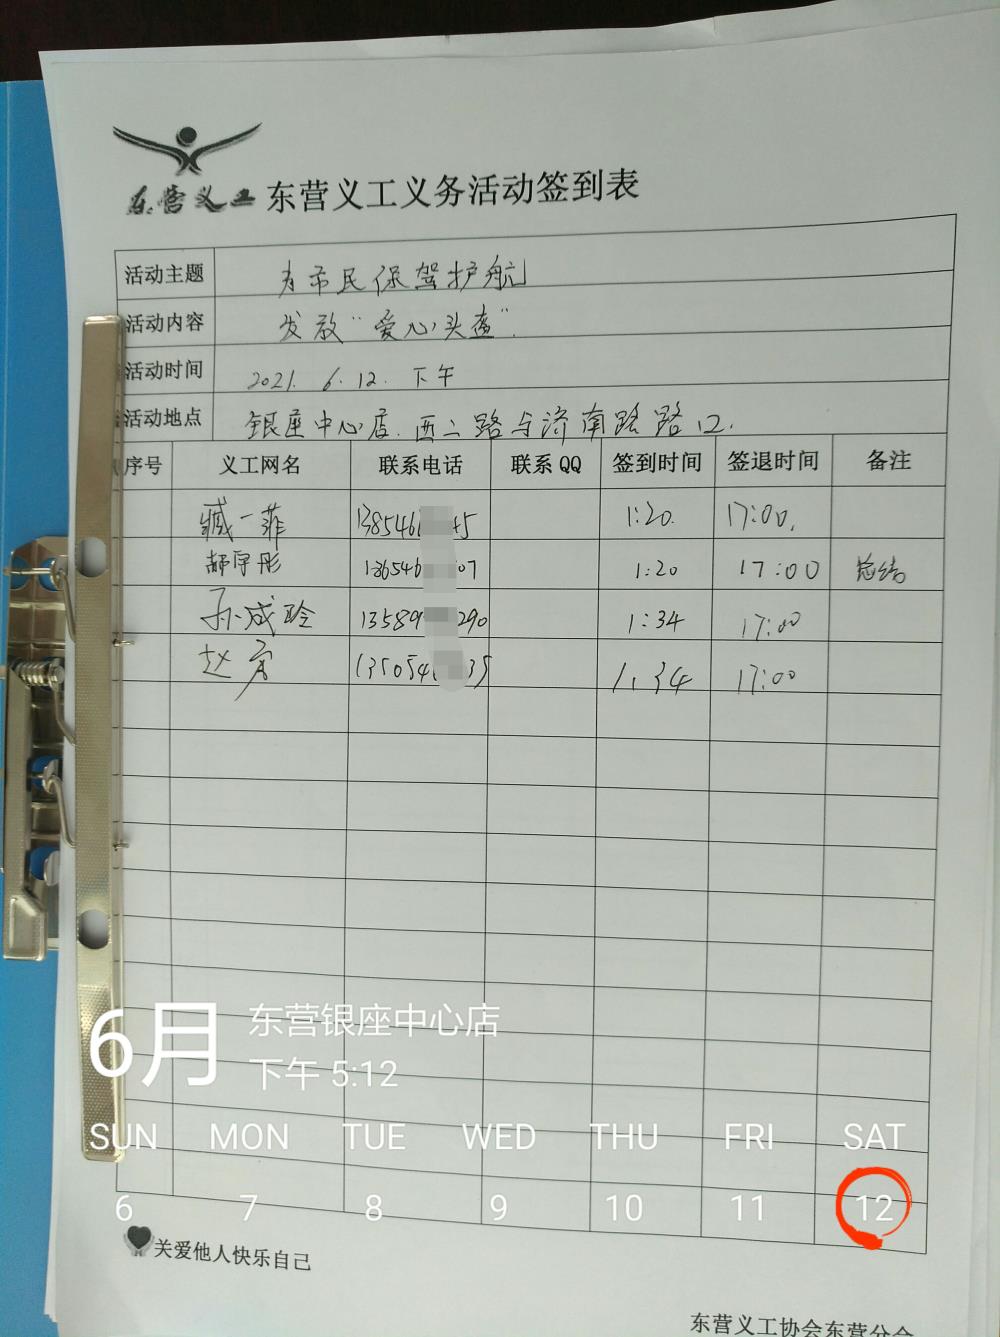 东营义工 东营义工义务活动签到表
活动主题 为市民保驾护航
活动内容 发放"爱心头盔".
活动时间 2021. 6. 12. 下午
活动地点 银座中心店. 西二路与济南路路口.
序号 义工网名 联系电话 联系QQ 签到时间 签退时间 备注
臧一菲 1385461 45 1:20. 17:00.
郝宇彤 136546 07 1:20 17:00 总结
孙成玲 13589 290 1:34 17:00
赵 135054 35 1:34 17:00
6月 东营银座中心店
下午 5:12
SUN MON TUE WED THU FRI SAT
6 7 8 9 10 11 12
关爱他人快乐自己
东营义工协会东营分会